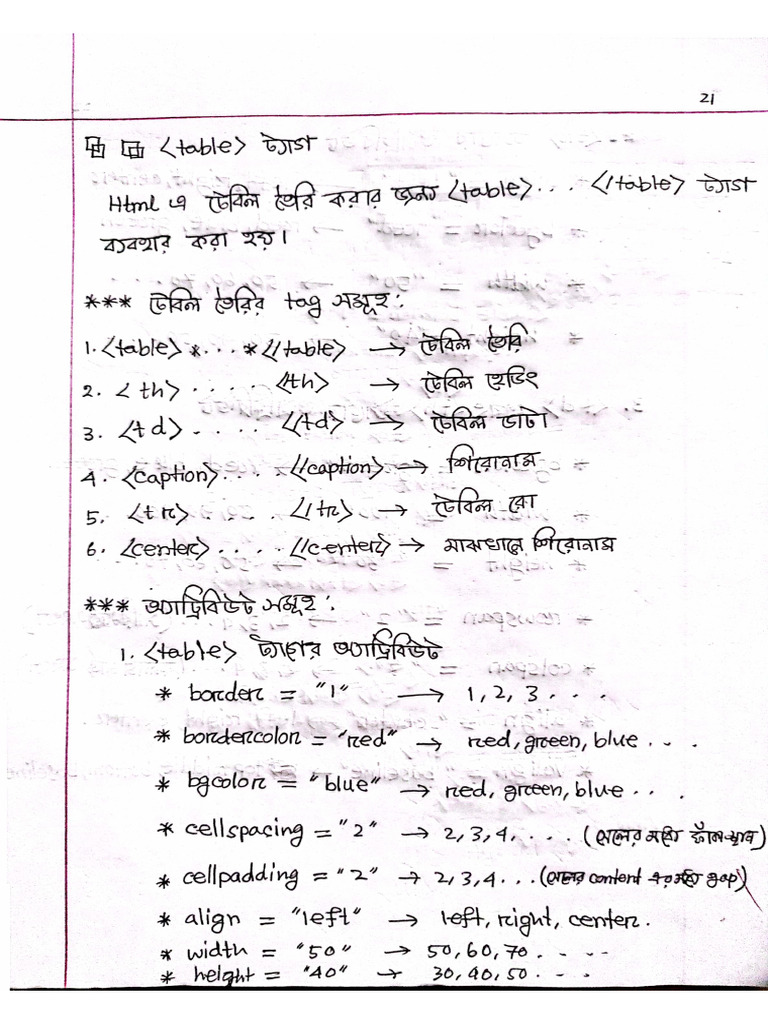 21
<table> ট্যাগ
Html এ টেবিল তৈরি করার জন্য <table>... </table> ট্যাগ
ব্যবহার করা হয়।
*** টেবিল তৈরির tag সমূহ:
1. <table>*...*</table> → টেবিল তৈরি
2. <th>..... </th> → টেবিল হেডিং
3. <td>..... </td> → টেবিল ডাটা
4. <caption>.... </caption> → শিরোনাম
5. <tr>..... </tr> → টেবিল রো
6. <center>.... </center> → মাঝখানে শিরোনাম
*** অ্যাট্রিবিউট সমূহ:
1. <table> ট্যাগের অ্যাট্রিবিউট
* border = "1" → 1, 2, 3...
* bordercolor = "red" → red, green, blue...
* bgcolor = "blue" → red, green, blue...
* cellspacing = "2" → 2, 3, 4,.... (সেলের মধ্যে ফাঁকা
* cellpadding = "2" → 2, 3, 4... (সেলের content এর মধ্যে gap)
* align = "left" → left, right, center.
* width = "50" → 50, 60, 70....
* height = "40" → 30, 40, 50....